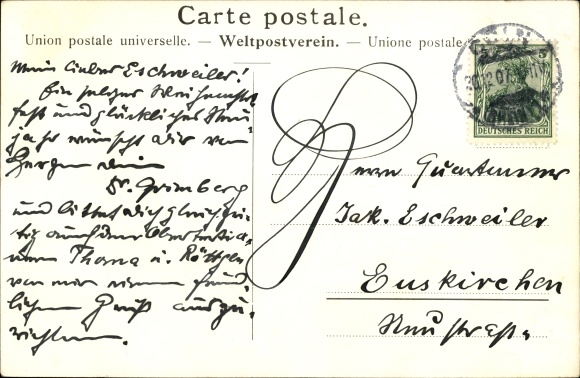 Carte postale.
Union postale universelle. — Weltpostverein. — Unione postale
DEUTSCHES REICH
Mein lieber Eschweiler!
Ein seliges Weihnachts-
fest und glückliches Neu-
jahr wünscht dir von
Herzen dein
Dr. Grimberg
und bittet dich gleichzei-
tig auch den Obertertia-
nern Thoma u. Röttgen
von mir einen freund-
lichen Gruß auszu-
richten.
Herrn Quartaner
Jak. Eschweiler
Euskirchen
Neustraße